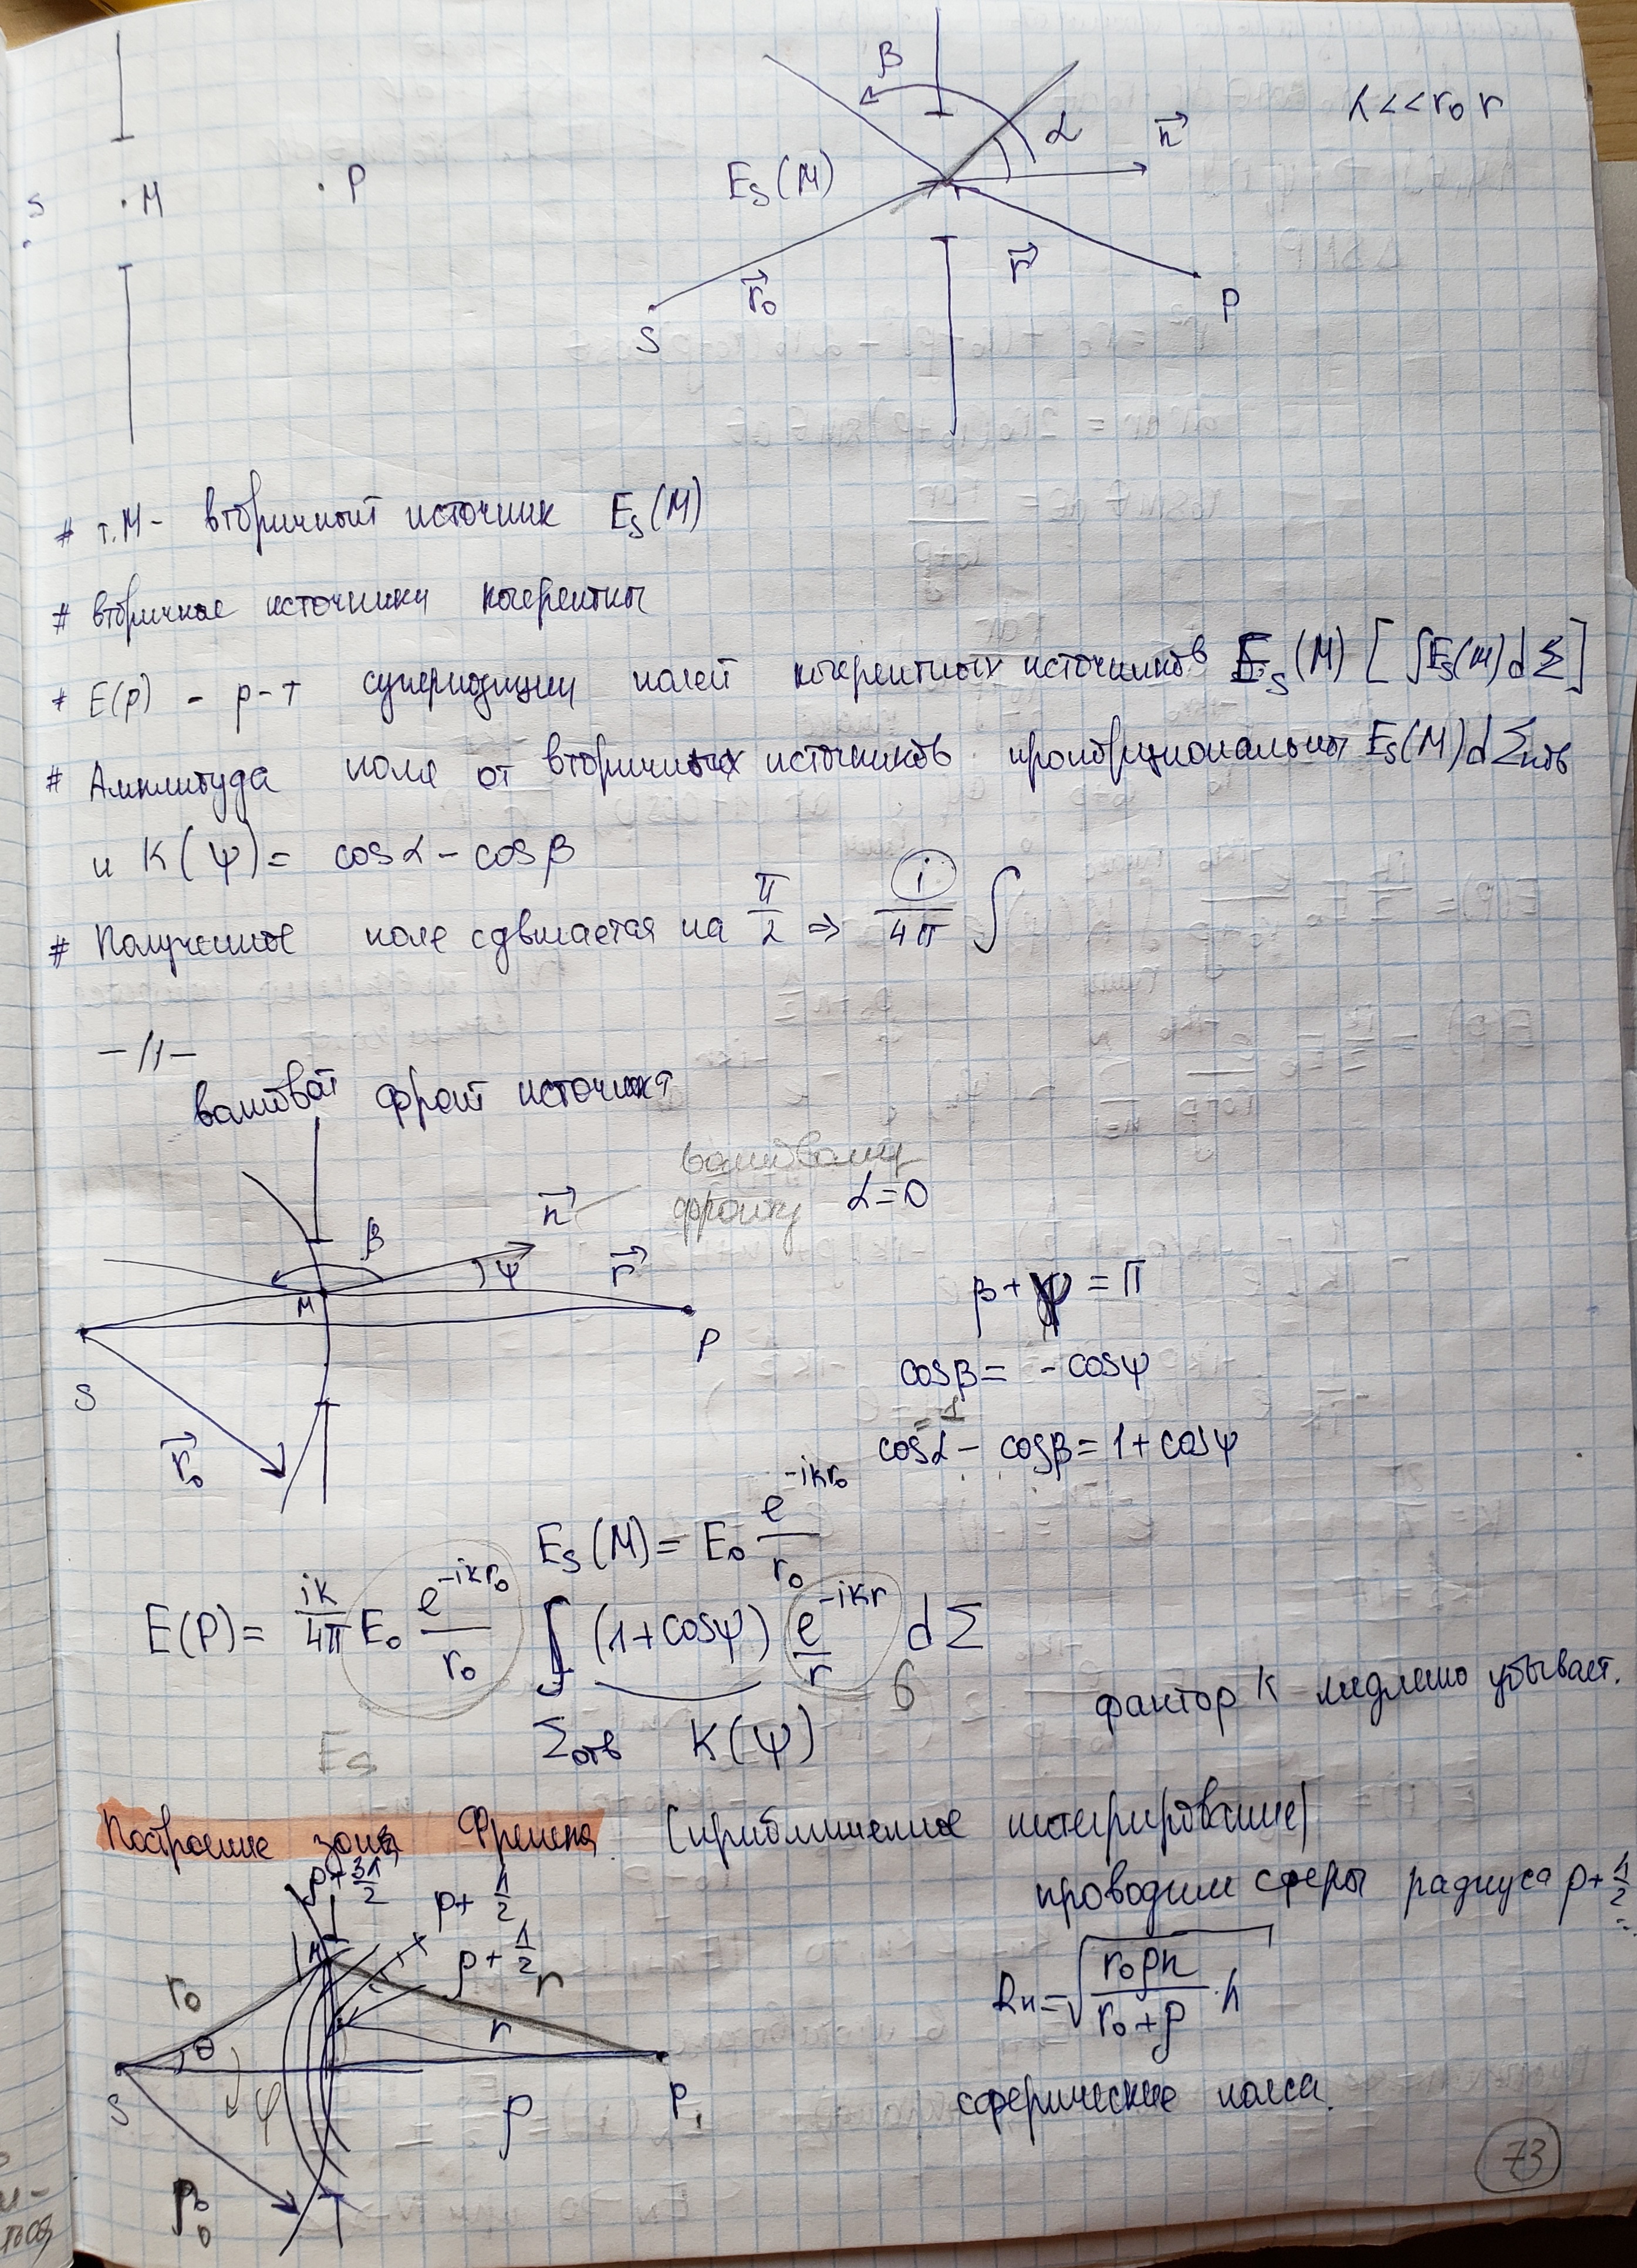 S
M
P
β
α
n⃗
λ << r₀ r
E_S(M)
r⃗₀
r⃗
S
P
# т.М - вторичный источник E_S(M)
# вторичные источники когерентны
# E(p) - р-т суперпозиции полей когерентных источников E_S(M) [∫E_S(M)dΣ]
# Амплитуда поля от вторичных источников пропорциональны E_S(M)dΣ_отв
и K(ψ) = cosα - cosβ
# Полученное поле сдвигается на π/2 ⇒ i/4π ∫
-//-
волновой фронт источника
волновому
фронту α=0
β
n⃗
ψ
r⃗
M
P
S
r⃗₀
β + ψ = π
cosβ = - cosψ
=1
cosα - cosβ = 1 + cosψ
E_S(M) = E₀ e^{-ikr₀}/r₀
E(P) = ik/4π E₀ e^{-ikr₀}/r₀ ∫ (1+cosψ) e^{-ikr}/r dΣ
Σ_отв K(ψ)
E_S
фактор K медленно убывает.
Построение зоны Френеля. (приближенное интегрирование)
проводим сферы радиуса ρ+λ/2
ρ+3λ/2
ρ+λ/2
ρ+λ/2
r₀
r
θ
r
S
φ
ρ
P
ρ₀
R_n = √(r₀ρn/(r₀+ρ) · λ)
сферические пояса.
73